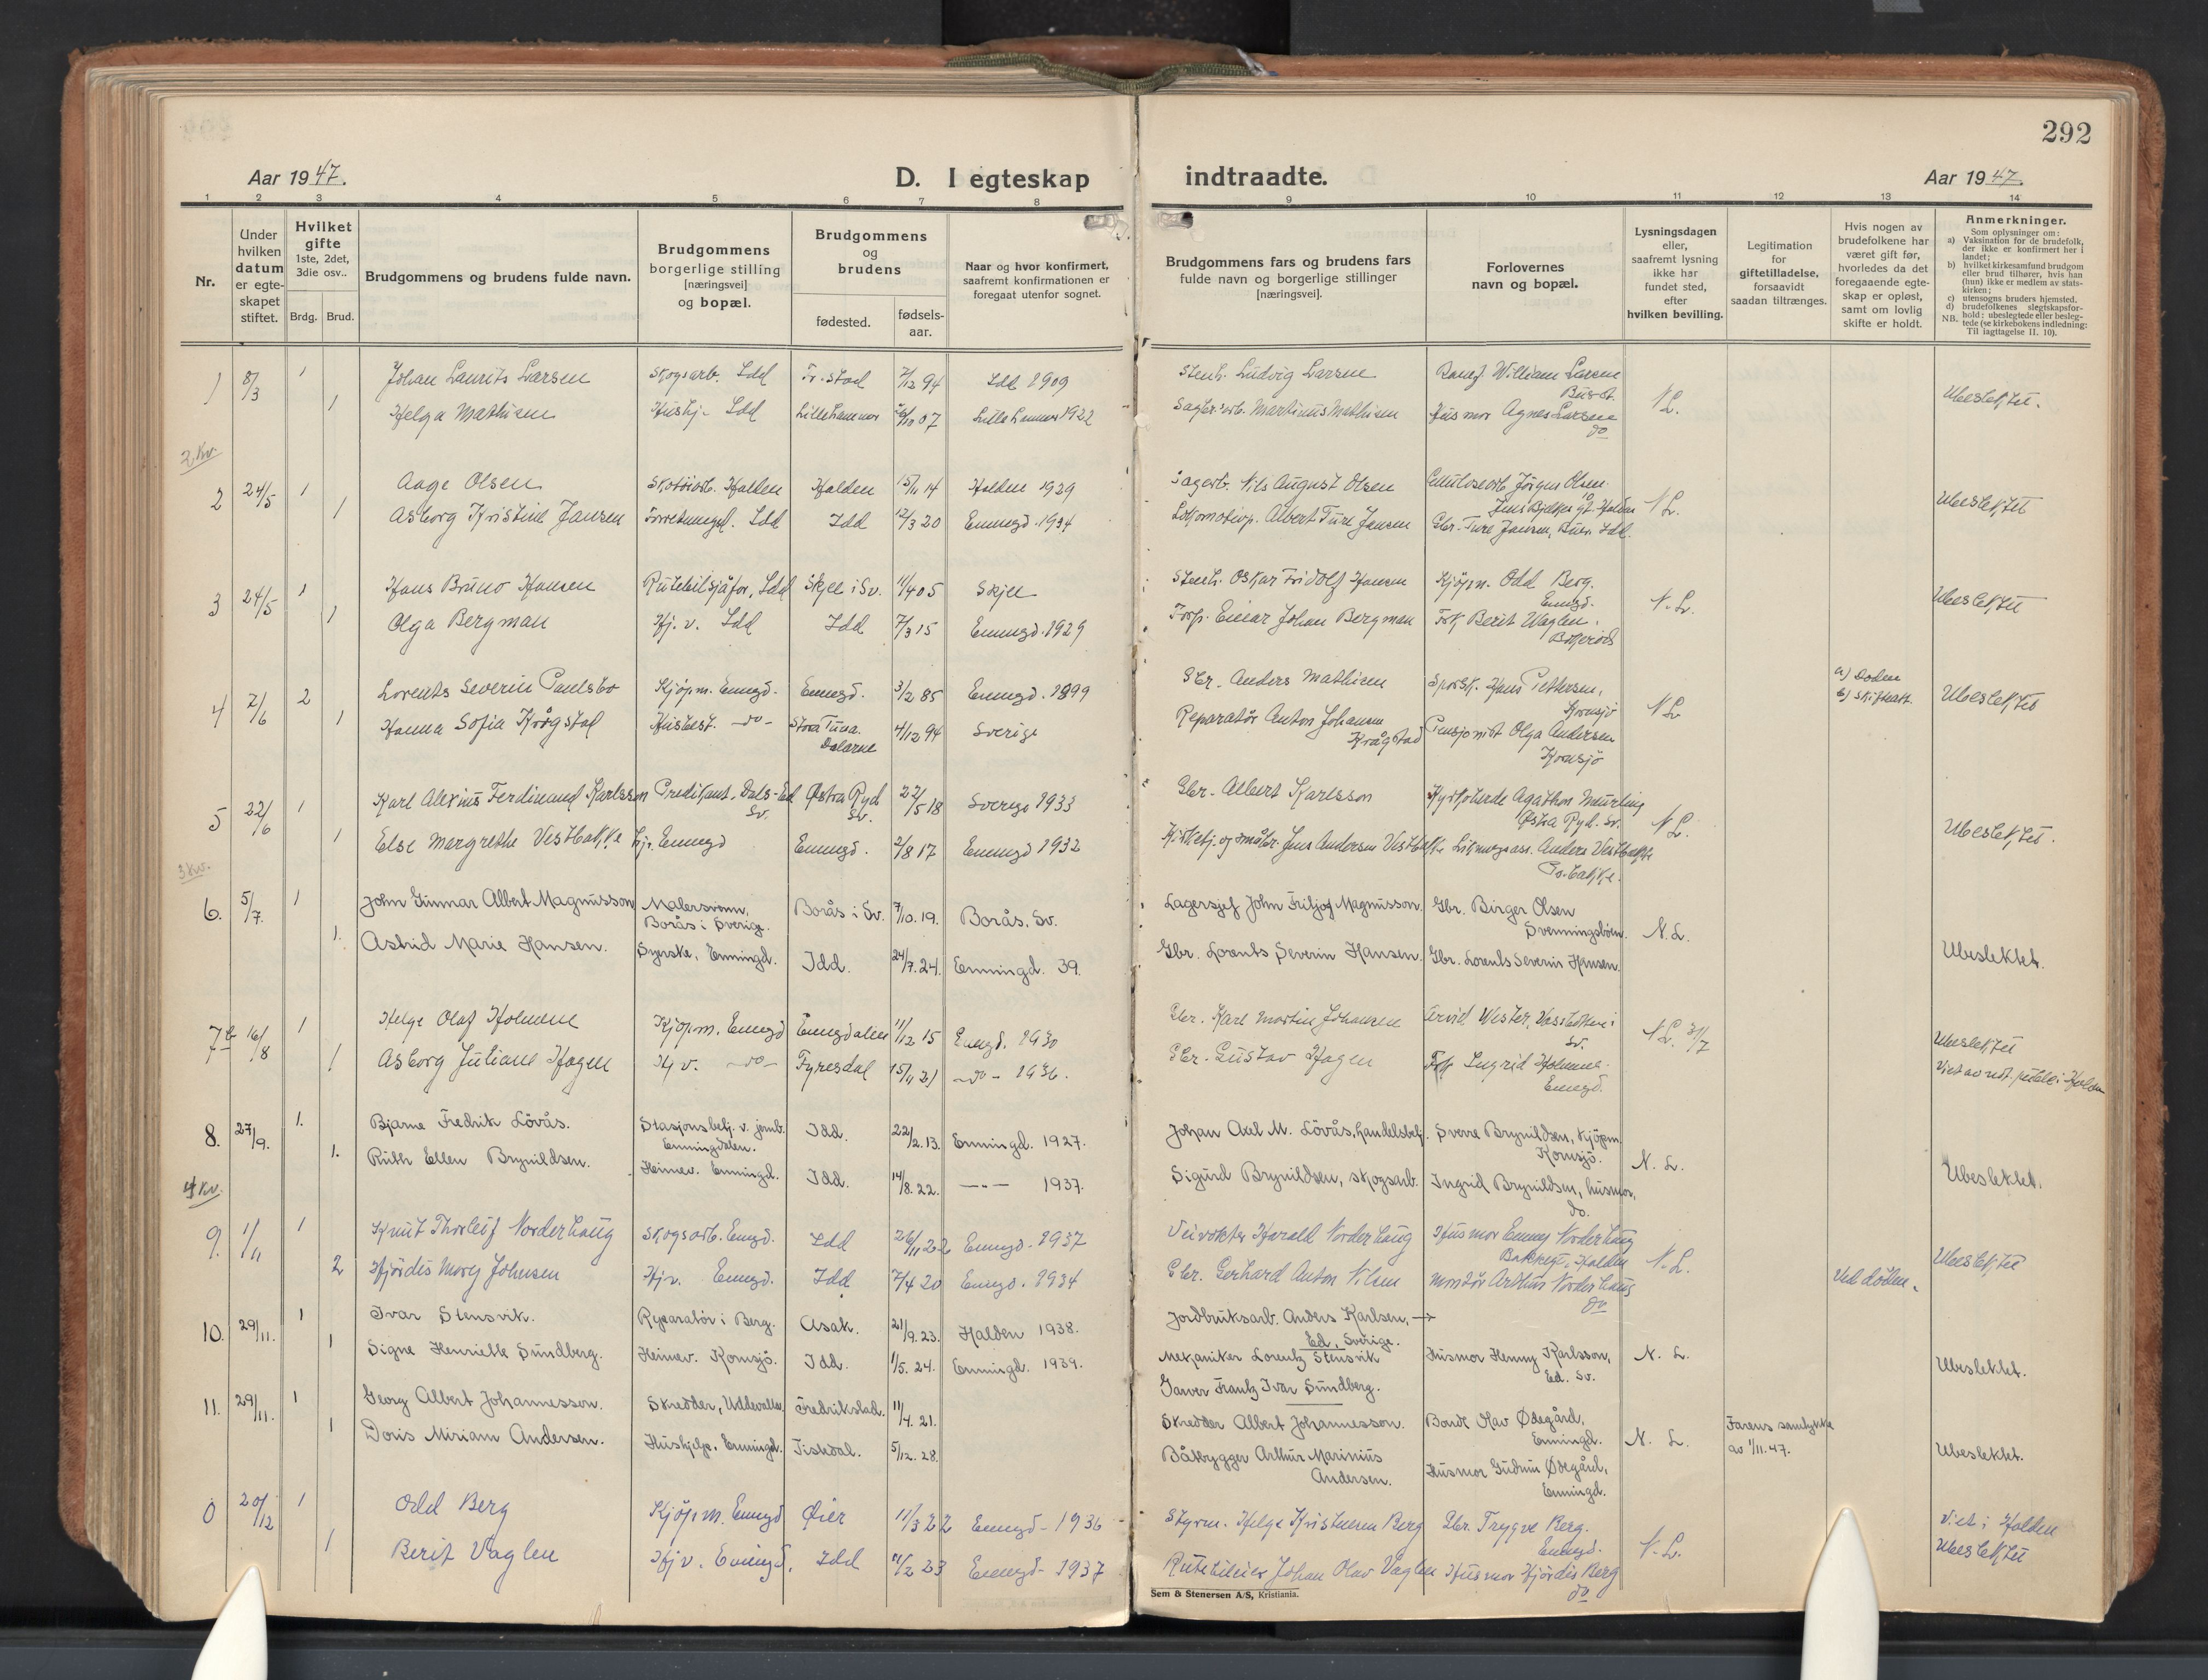 292
Aar 1947.
D. I egteskap indtraadte.
Aar 1947.
1 2 3 4 5 6 7 8 9 10 11 12 13 14
Nr.
Under hvilken datum er egte-skapet stiftet.
Hvilket gifte 1ste, 2det, 3die osv..
Brdg. Brud.
Brudgommens og brudens fulde navn.
Brudgommens borgerlige stilling [næringsvei] og bopæl.
Brudgommens og brudens
fødested.
fødsels-aar.
Naar og hvor konfirmert, saafremt konfirmationen er foregaat utenfor sognet.
Brudgommens fars og brudens fars fulde navn og borgerlige stillinger [næringsvei].
Forlovernes navn og bopæl.
Lysningsdagen eller, saafremt lysning ikke har fundet sted, efter hvilken bevilling.
Legitimation for giftetilladelse, forsaavidt saadan tiltrænges.
Hvis nogen av brudefolkene har været gift før, hvorledes da det foregaaende egte-skap er opløst, samt om lovlig skifte er holdt.
Anmerkninger.
Som oplysninger om:
a) Vaksination for de brudefolk, der ikke er konfirmert her i landet;
b) hvilket kirkesamfund brudgom eller brud tilhører, hvis han (hun) ikke er medlem av stats-kirken;
c) utensogns bruders hjemsted.
d) brudefolkenes slegtskapsfor-hold: ubeslegtede eller besleg-tede (se kirkebokens indledning:
NB. Til iagttagelse II. 10).
1 8/3 1 Johan Laurits Larsen Skogsarb. Idd Fr.stad 7/12 94 Idd 1909 Stenh. Ludvig Larsen William Larsen N L. Ubeslektet.
1 Helga Mathisen Hushj. Idd Lillehammer 07 Lillehammer 1922 Martinus Mathisen Husmor Agnes Larsen do
2 Kv.
2 24/5 1 Aage Olsen Skotöiarb. Halden Halden 15/11 14 Halden 1929 Sagarb. Nils August Olsen Cellulosearb. Jörgen Olsen Jens Bjelkes gt. Halden N L. Ubeslektet
1 Asborg Kristine Jansen Idd Idd 12/3 20 Enningd. 1934 Lokomotivp. Albert Ture Jansen Gbr. Ture Jansen, Idd.
3 24/5 1 Hans Bruno Hansen Rutebilsjåför, Idd Skjee i Sv. 11/4 05 Skjee Stenh. Oskar Fridolf Hansen Kjöpm. Odd Berg. Enngd. N. L. Ubeslektet
1 Olga Bergman Hj. v. Idd Idd 7/3 15 Enningd. 1929 Forp. Einar Johan Bergman Frk Berit Vaglen,
4 7/6 2 Lorents Severin Paulsbo Kjöpm. Enngd. Enngd. 3/2 85 Enngd. 1899 Gbr. Anders Mathisen Hans Pettersen, Kornsjö N L a) Döden b) Skifteatt. Ubeslektet
1 Hanna Sofia Krågstad Husbest. -do- Stora Tuna. Dalarne 4/12 94 Sverige Reparatör Anton Johansen Krågstad Pensjonist Olga Andersen Kornsjö
5 22/6 1 Karl Alexius Ferdinand Karlsson Predikant. Dals-Ed Sv. Østra Ryd Sv. 22/5 18 Sverige 1933 Gbr. Albert Karlsson Kyrkoherde Agathon Meurling Østra Ryd. Sv. N L. Ubeslektet.
1 Else Margrethe Vestbakke hj. Enningd Enningd. 2/8 17 Enningd 1932 Kirketj. og småbr. Jens Andersen Vestbakke Anders Vestbakke
3 Kv.
6. 5/7. 1 John Gunnar Albert Magnusson Malersvenn, Borås i Sverige. Borås i Sv. 7/10. 19. Borås. Sv. Lagersjef John Fritjof Magnusson. Gbr. Birger Olsen N. L.
1. Astrid Marie Hansen. Syerske, Enningd. Idd. 24/7. 24. Enningd. 39. Gbr. Lorents Severin Hansen. Gbr. Lorents Severin Hansen. Ubeslektet.
7 16/8 1 Helge Olaf Holmene Kjöpm. Enngd Enngdalen 11/12 15 Enngd. 1930 Gbr. Karl Martin Johansen Arvid Wester, Sv. N L. 31/7 Ubeslektet
1 Asborg Juliane Hagen Hj v. -do- Fyresdal 15/11 21 -do- 1936. Gbr. Gustav Hagen Frk Ingrid Holmene. Enngd. Viet av i Halden
8. 27/9. 1. Bjarne Fredrik Lövås. Stasjonsbetj. v. jernb. Enningdalen. Idd. 22/2. 13. Enningd. 1927. Johan Axel M. Lövås, handelsbetj. Sverre Brynildsen, kjöpm. Kornsjö. N. L.
1. Ruth Ellen Brynildsen. Heimev. Enningd. Idd. 14/8. 22. -"- 1937. Sigurd Brynildsen, skogsarb. Ingrid Brynildsen, husmor, do. Ubeslektet.
4 Kv.
9. 1/11 1 Knut Thorleif Norderhaug Skogsarb. Enngd. Idd 26/11 22 Enngd. 1937 Veivokter Harald Norderhaug Husmor Emmy Norderhaug Halden N. L. Ubeslektet
2 Hjördis Mary Johnsen Hjv. Enngd. Idd 7/4 20 Enngd. 1934 Gbr. Gerhard Anton Nilsen Montör Arthur Norderhaug do Ved döden.
10. 29/11. 1 Ivar Stensvik. Reparatör i Berg. Asak. 21/9. 23. Halden 1938. Jordbruksarb. Anders Karlsen, → Ed, Sverige.
1 Signe Henriette Sundberg. Heimev. Kornsjö. Idd. 1/5. 24. Enningd. 1939. Mekaniker Lorentz Stensvik Husmor Henny Karlsson, Ed. Sv. N. L. Ubeslektet.
Garver Frantz Ivar Sundberg.
11. 29/11. 1 Georg Albert Johannesson. Skredder, Uddevalla. Fredrikstad. 11/4. 21. Skredder Albert Johannesson. Bonde Olav Ødegård, Enningd. N. L. Farens samtykke av 1/11. 47.
1 Doris Miriam Andersen. Hushjelp. Enningd. Tistedal. 5/12. 28. Båtbygger Arthur Marinius Andersen. Husmor Gudrun Ødegård, Enningd. Ubeslektet.
0 20/12 1 Odd Berg Kjöpm. Enngd Øier 11/3 22 Enngd - 1936 Styrm. Helge Kristneren Berg Gbr. Trygve Berg. Enngd. N. L. Viet i Halden Ubeslektet
1 Berit Vaglen Hjv. Enngd. Idd 11/2 23 Enngd - 1937 Rutebileier Johan Olav Vaglen Husmor Hjördis Berg do
Sem & Stenersen A/S, Kristiania.